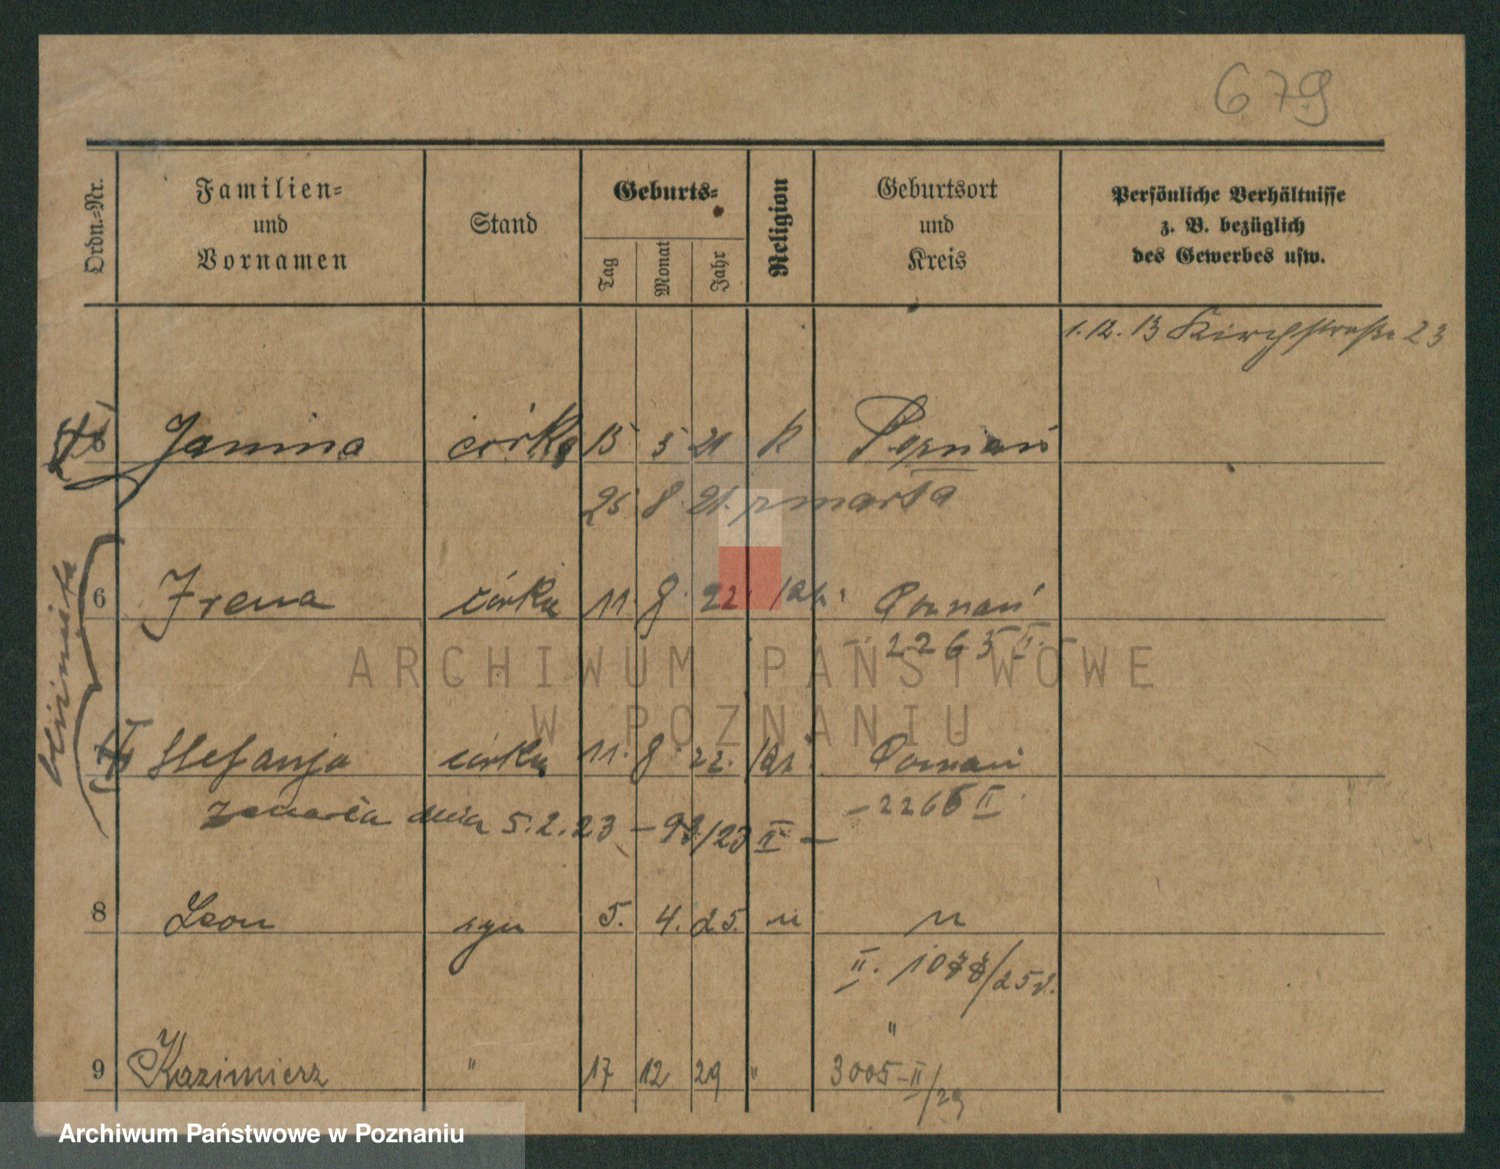 679
Ordn.-Nr.
Familien-
und
Vornamen
Stand
Geburts-
Tag
Monat
Jahr
Religion
Geburtsort
und
Kreis
Persönliche Verhältnisse
z. B. bezüglich
des Gewerbes usw.
1.12.13 Kirchstraße 23
Janina córka 15 5 21 k Poznań
25 8 21. zmarła
bliźnięta
6 Irena córka 11. 8. 22. kat. Poznań
2265 II.
Stefanja córka 11. 8. 22. kat. Poznań
zmarła dnia 5.2.23 – 93/23 II –
– 2266 II
8 Leon syn 5. 4. 25. " "
II. 1078/25
"
9 Kazimierz " 17 12 29 " 3005-II/29
ARCHIWUM PAŃSTWOWE
W POZNANIU
Archiwum Państwowe w Poznaniu